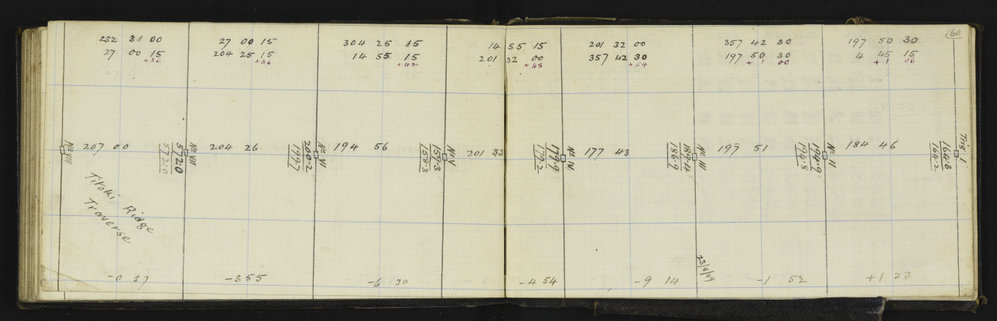 232 31 00 27 00 15 304 25 15 14 55 15 201 32 00 357 42 30 197 50 30 160
27 00 15 204 25 15 14 55 15 201 32 00 357 42 30 197 50 30 4 45 15
+30 +36 +42 +48 +54 + 1 00 + 1 06
No VIII 207 00 572.0 572.0 No VII 204 26 200.2 199.7 No VI 194 56 159.3 158.3 No V 201 33 179.9 179.2 No IV 177 43 189.4 186.9 No III 197 51 194.9 194.8 No II 184 46 164.8 164.2 Trig 1
Titoki Ridge
Traverse
23/8/09
-0 37 -3 55 -6 30 -4 54 -9 14 -1 52 +1 23